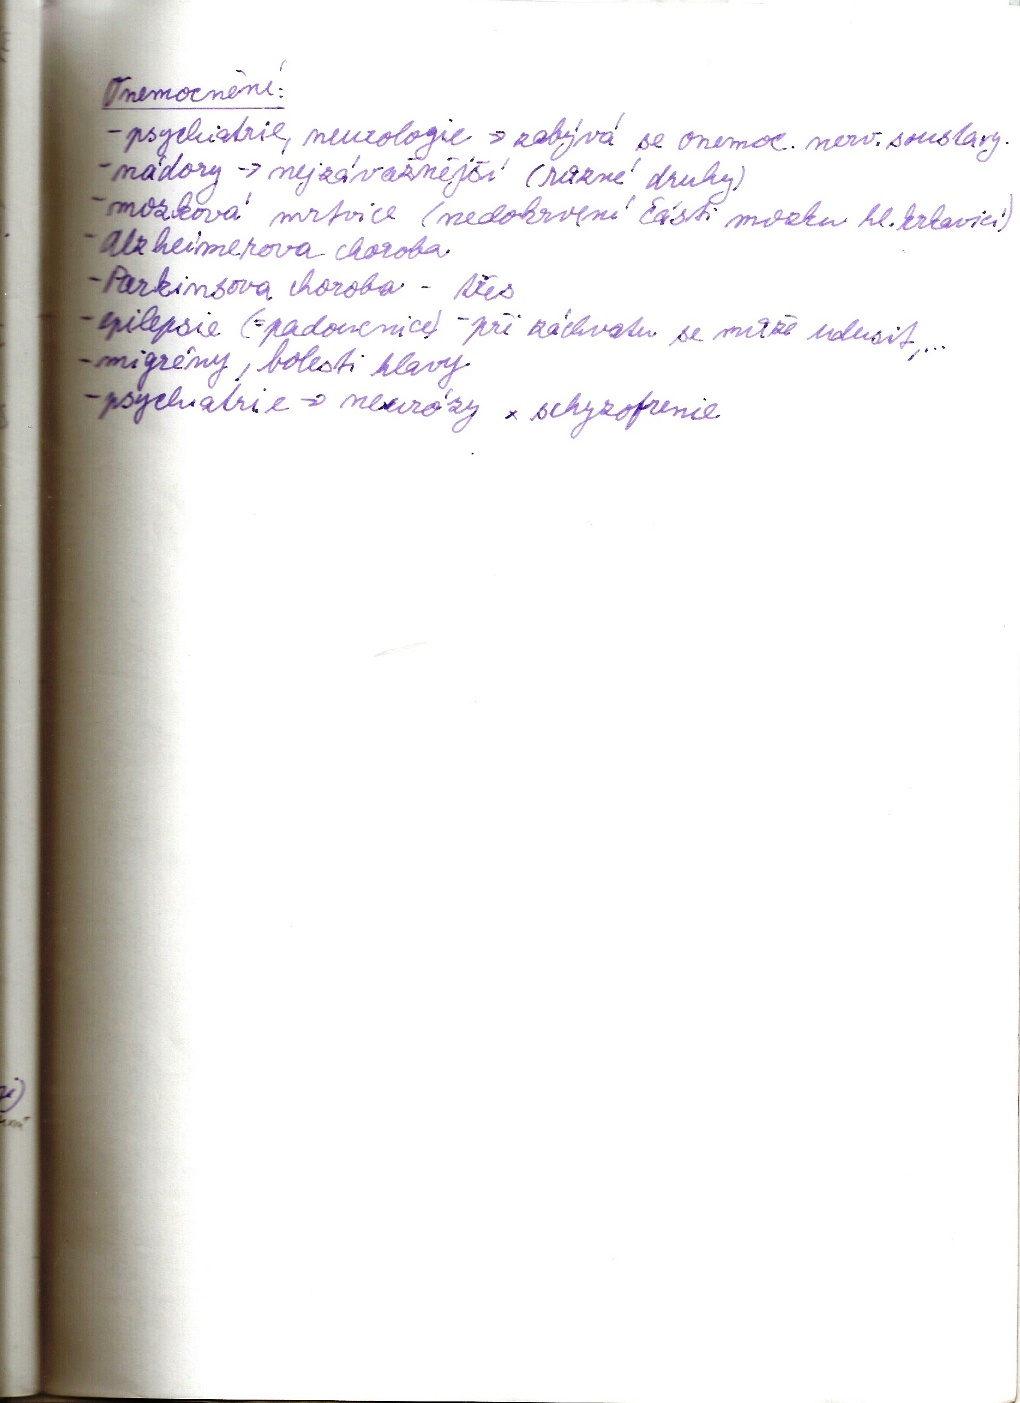 Onemocnění:
- psychiatrie, neurologie → zabývá se onemoc. nerv. soustavy.
- nádory → nejzávažnější (různé druhy)
- mozková mrtvice (nedokrvení části mozku hl. krkavicí)
- Alzheimerova choroba
- Parkinsova choroba - třes
- epilepsie (=padoucnice) - při záchvatu se může udusit,...
- migrény, bolesti hlavy
- psychiatrie → neurózy x schyzofrenie